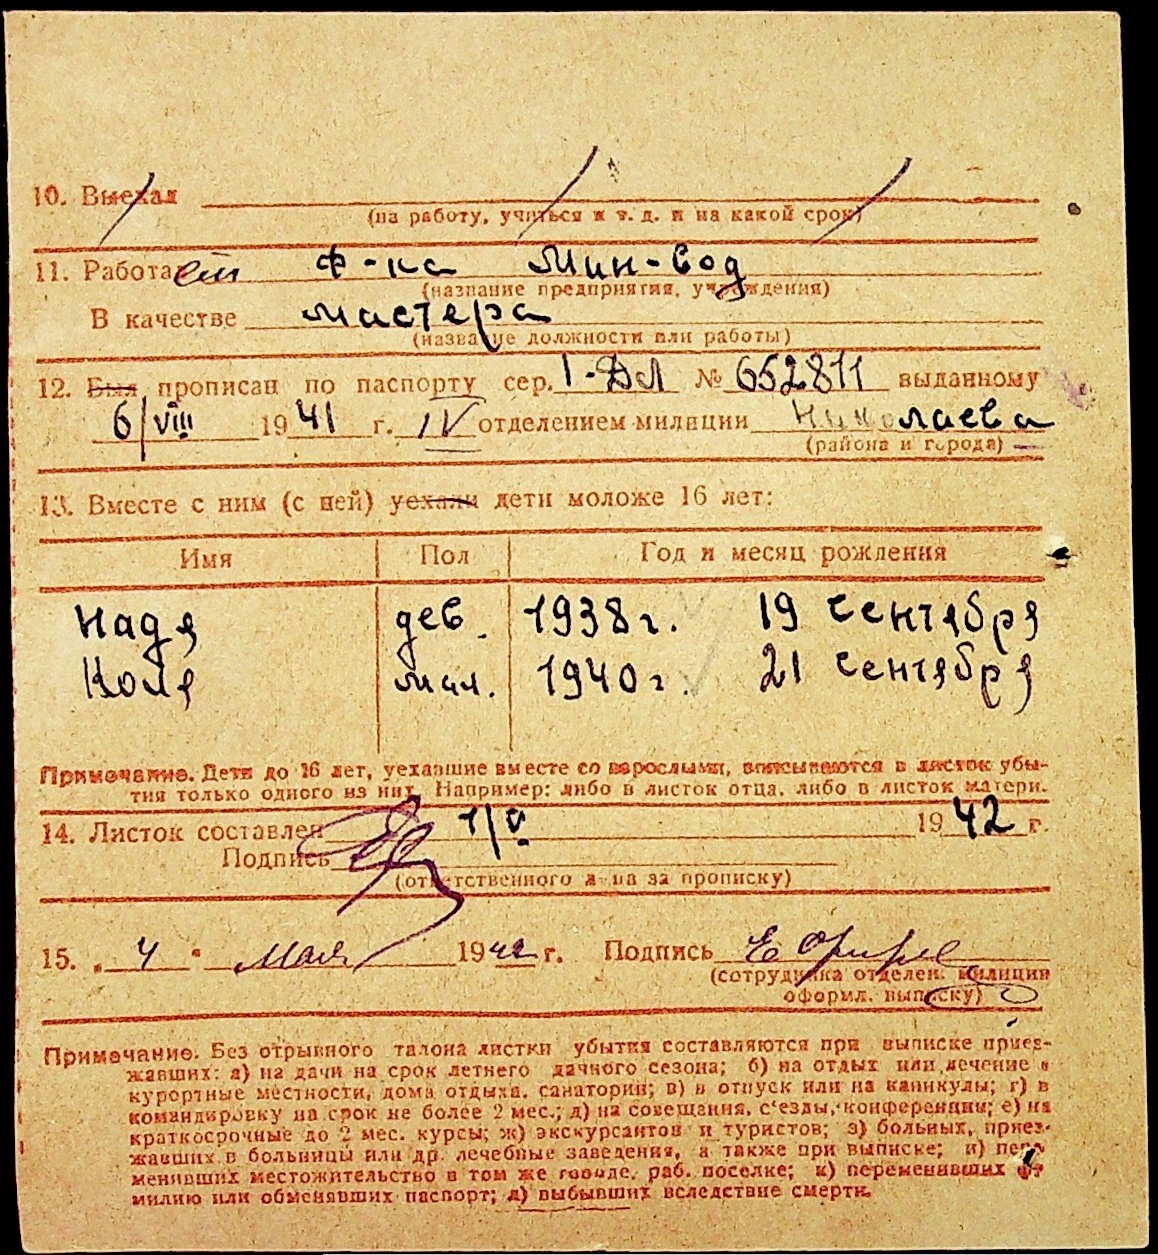 10. Выехал
(на работу, учиться и т. д. и на какой срок)
11. Работает ф-ка Мин-вод
(название предприятия, учреждения)
В качестве мастера
(название должности или работы)
12. Был прописан по паспорту сер. I-ДЛ № 652811 выданному
6/VIII 1941 г. IV отделением милиции Николаева
(района и города)
13. Вместе с ним (с ней) уехали дети моложе 16 лет:
Имя Пол Год и месяц рождения
Надя дев. 1938 г. 19 сентября
Коля мал. 1940 г. 21 сентября
Примечание. Дети до 16 лет, уехавшие вместе со взрослыми, вписываются в листок убы-
тия только одного из них. Например: либо в листок отца, либо в листок матери.
14. Листок составлен 1/V 1942 г.
Подпись
(ответственного лица за прописку)
15. „ 4 " мая 1942 г. Подпись
(сотрудника отделен. милиции
оформл. выписку)
Примечание. Без отрывного талона листки убытия составляются при выписке приез-
жавших: а) на дачи на срок летнего дачного сезона; б) на отдых или лечение в
курортные местности, дома отдыха, санатории; в) в отпуск или на каникулы; г) в
командировку на срок не более 2 мес.; д) на совещания, с'езды, конференции; е) на
краткосрочные до 2 мес. курсы; ж) экскурсантов и туристов; з) больных, приез-
жавших в больницы или др. лечебные заведения, а также при выписке; и) пере-
менивших местожительство в том же городе, раб. поселке; к) переменивших фа-
милию или обменявших паспорт; л) выбывших вследствие смерти.